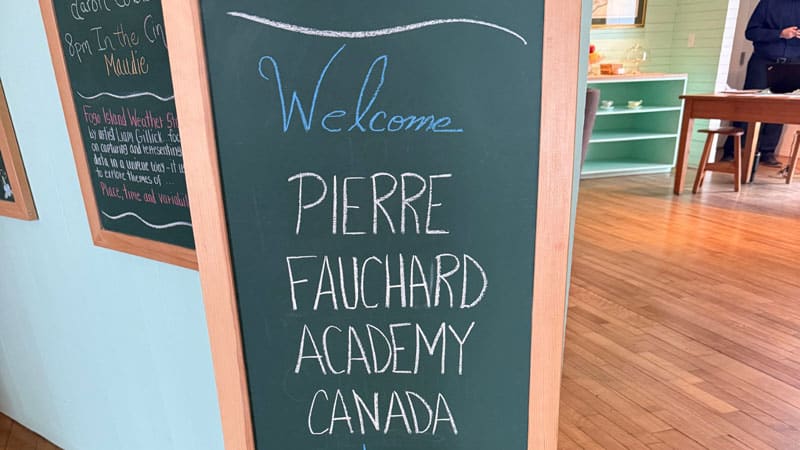 8pm In the Cin
Maudie
Fogo Island Weather St
by artist Liam Gillick
on capturing and representing
data in a unique way - it
to explore themes of ...
Place, time and variabil
Welcome
PIERRE
FAUCHARD
ACADEMY
CANADA